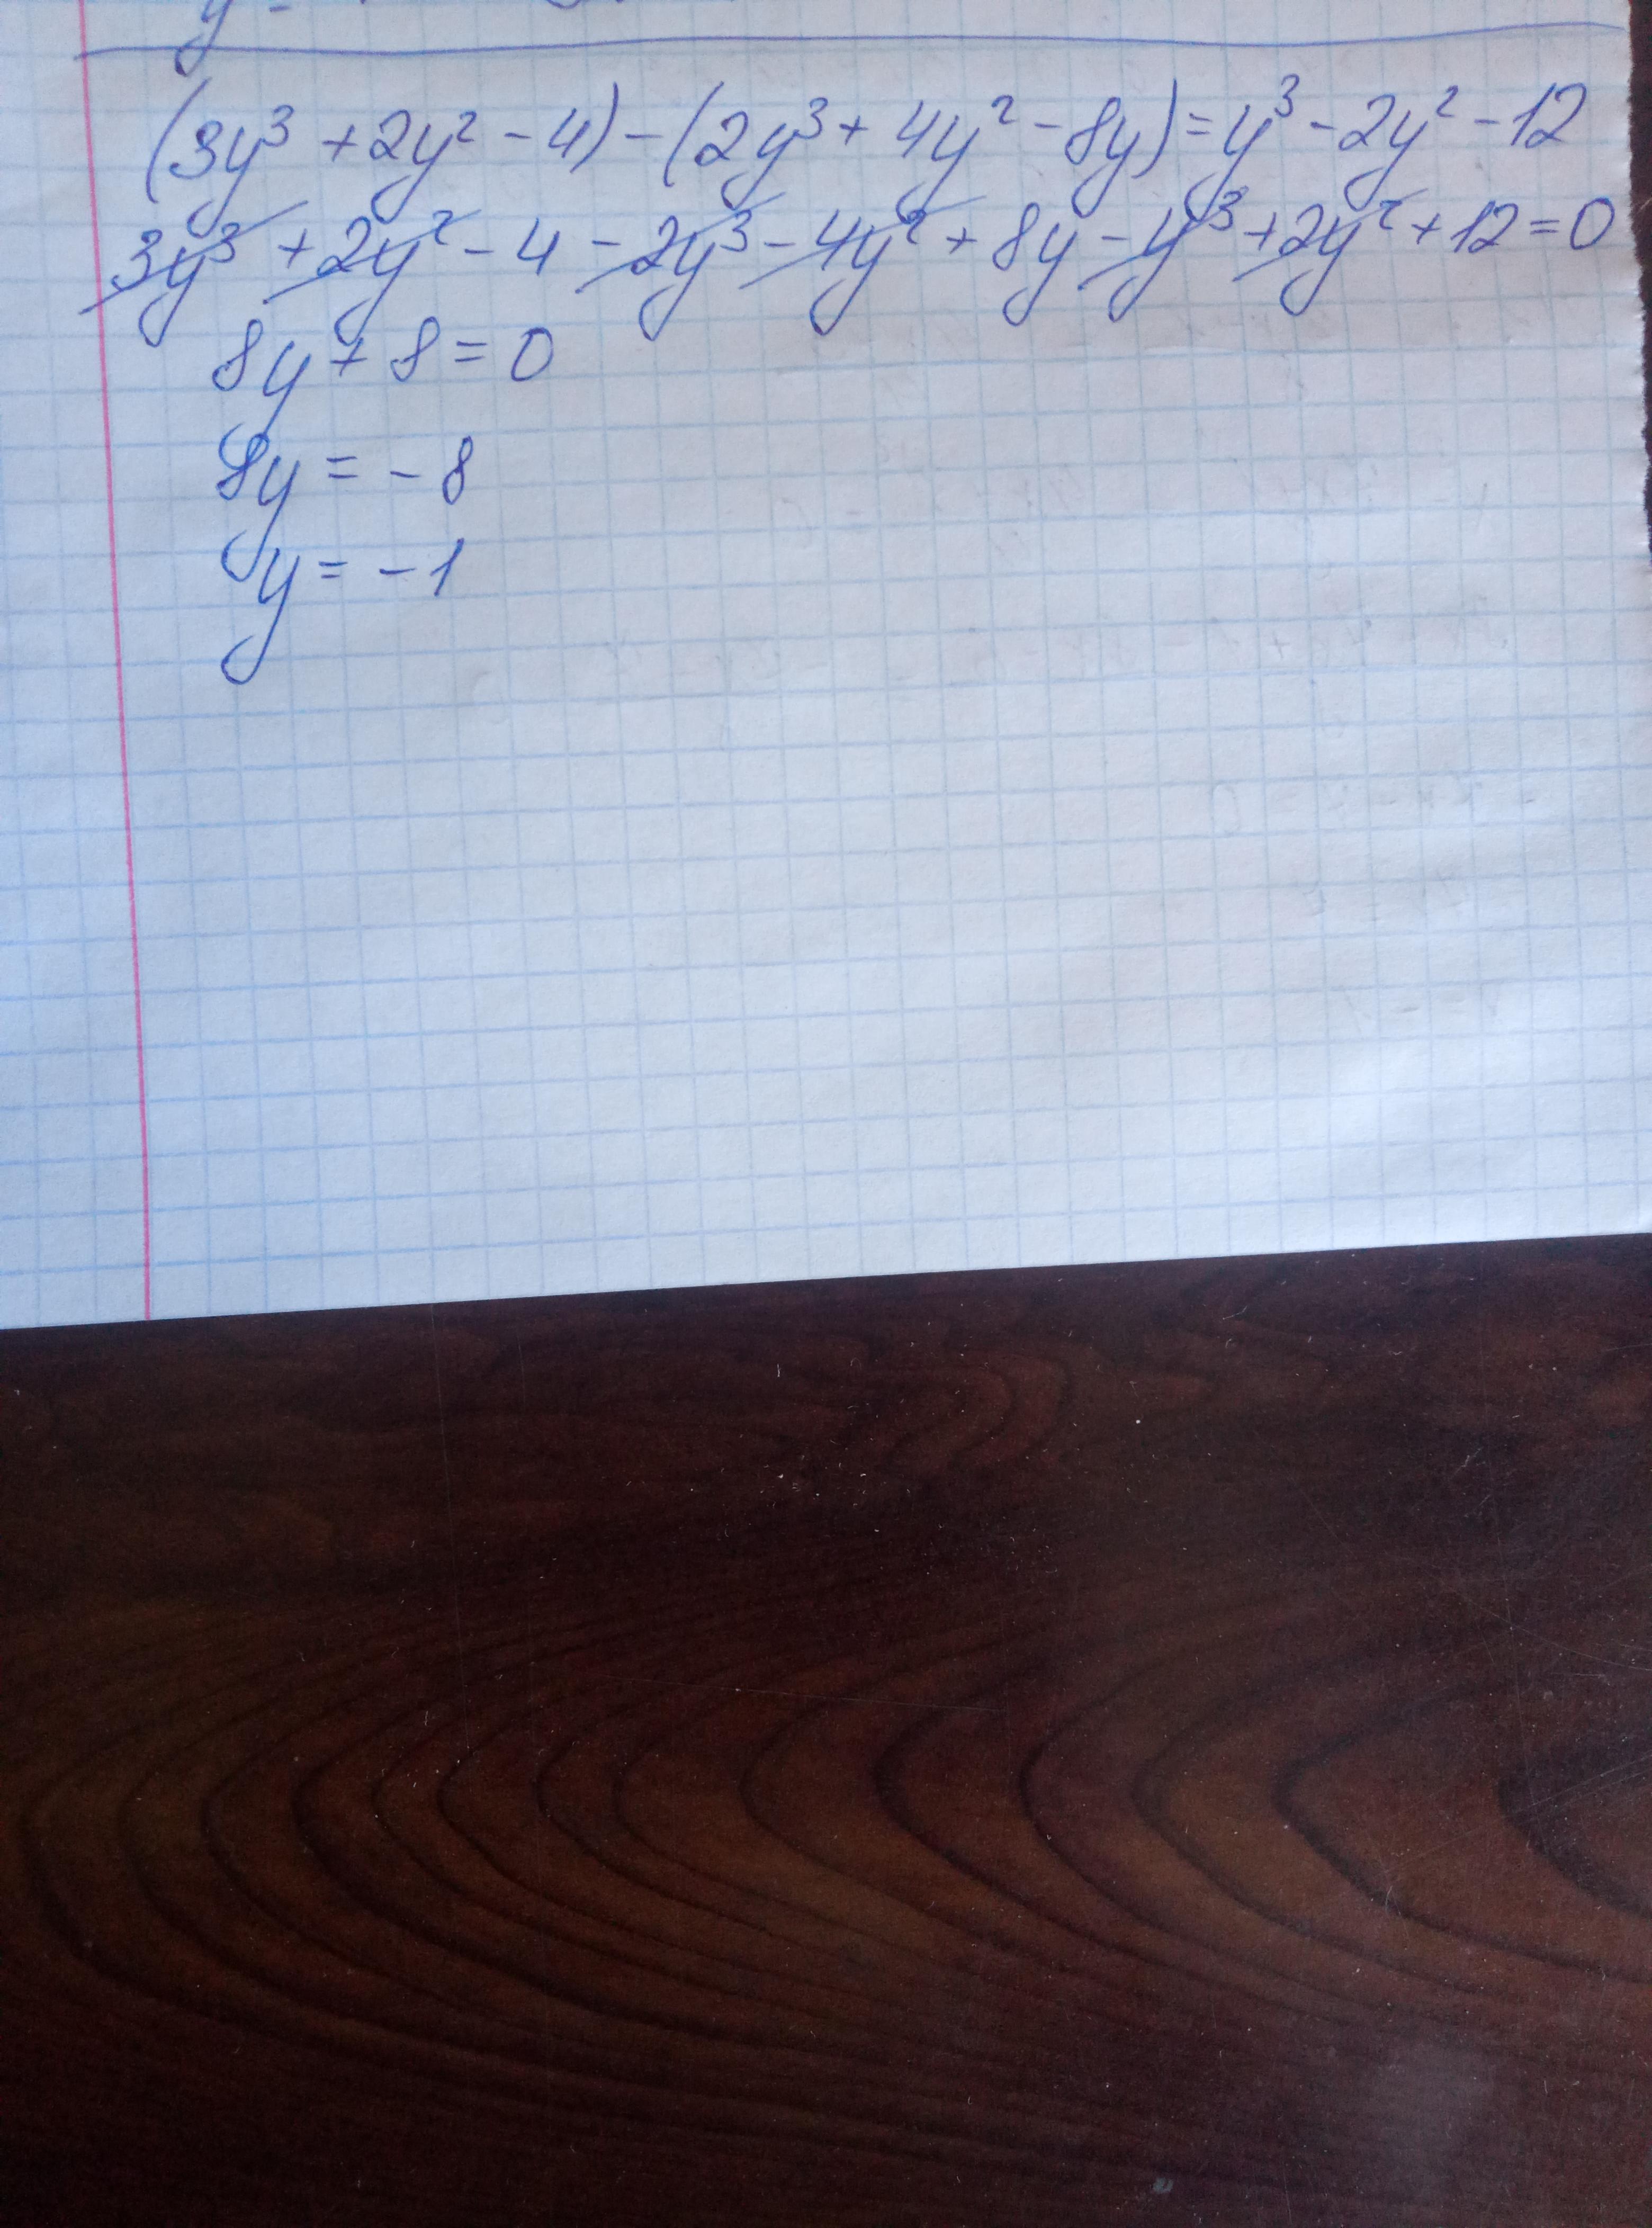 (3y³ + 2y² - 4) - (2y³ + 4y² - 8y) = y³ - 2y² - 12
3y³ + 2y² - 4 - 2y³ - 4y² + 8y - y³ + 2y² + 12 = 0
8y + 8 = 0
8y = - 8
y = - 1